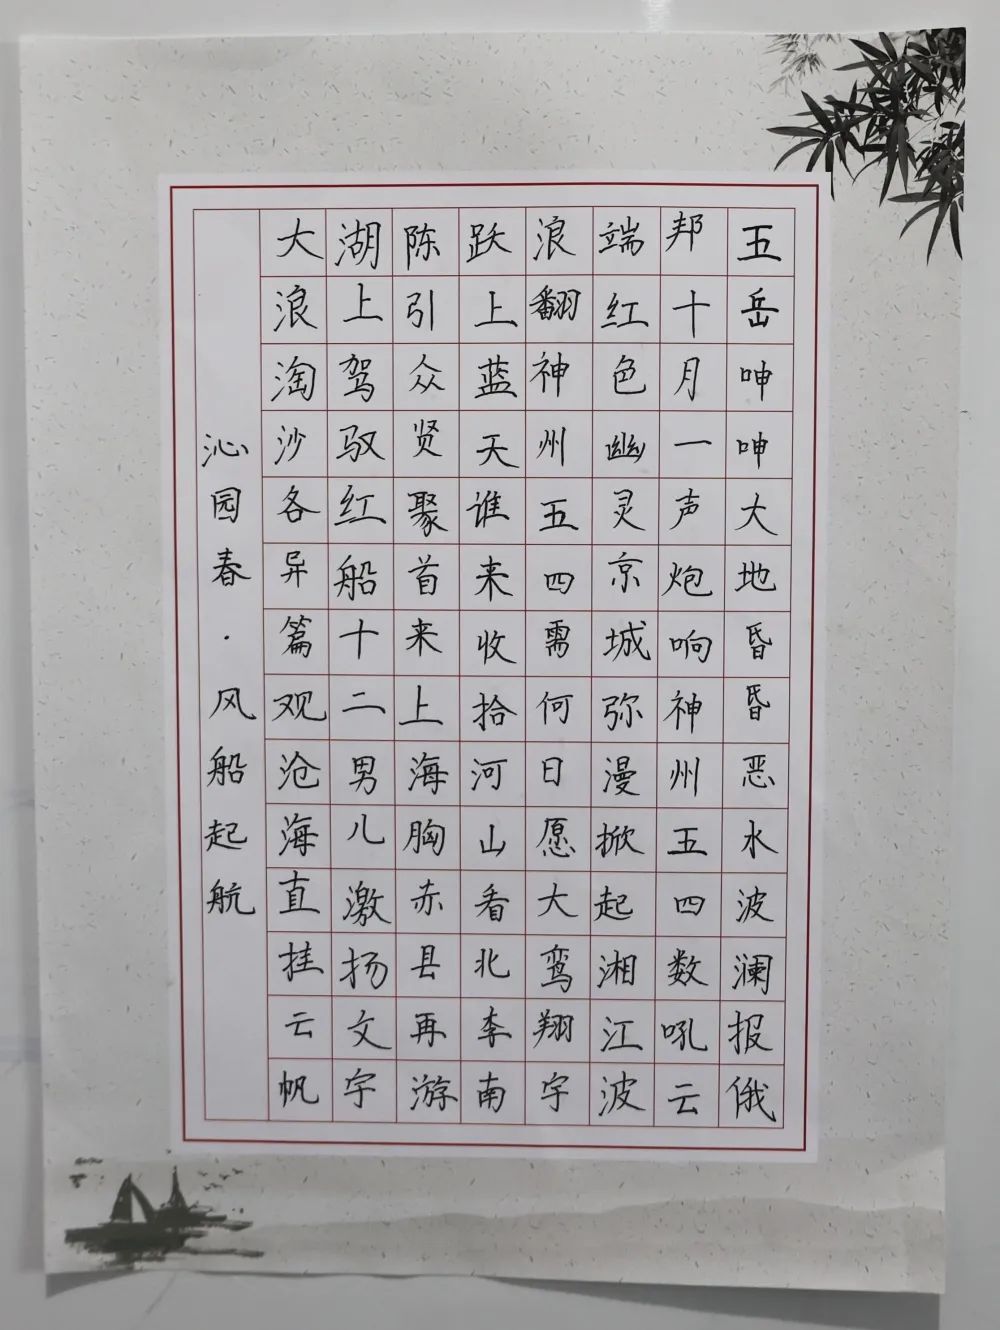 五岳呻呻大地昏昏恶水波澜报俄
邦十月一声炮响神州五四数吼云
端红色幽灵京城弥漫掀起湘江波
浪翻神州五四需何日愿大鸾翔宇
跃上蓝天谁来收拾河山看北李南
陈引众贤聚首来上海胸赤县再游
湖上驾驭红船十二男儿激扬文字
大浪淘沙各异篇观沧海直挂云帆
沁园春·风船起航